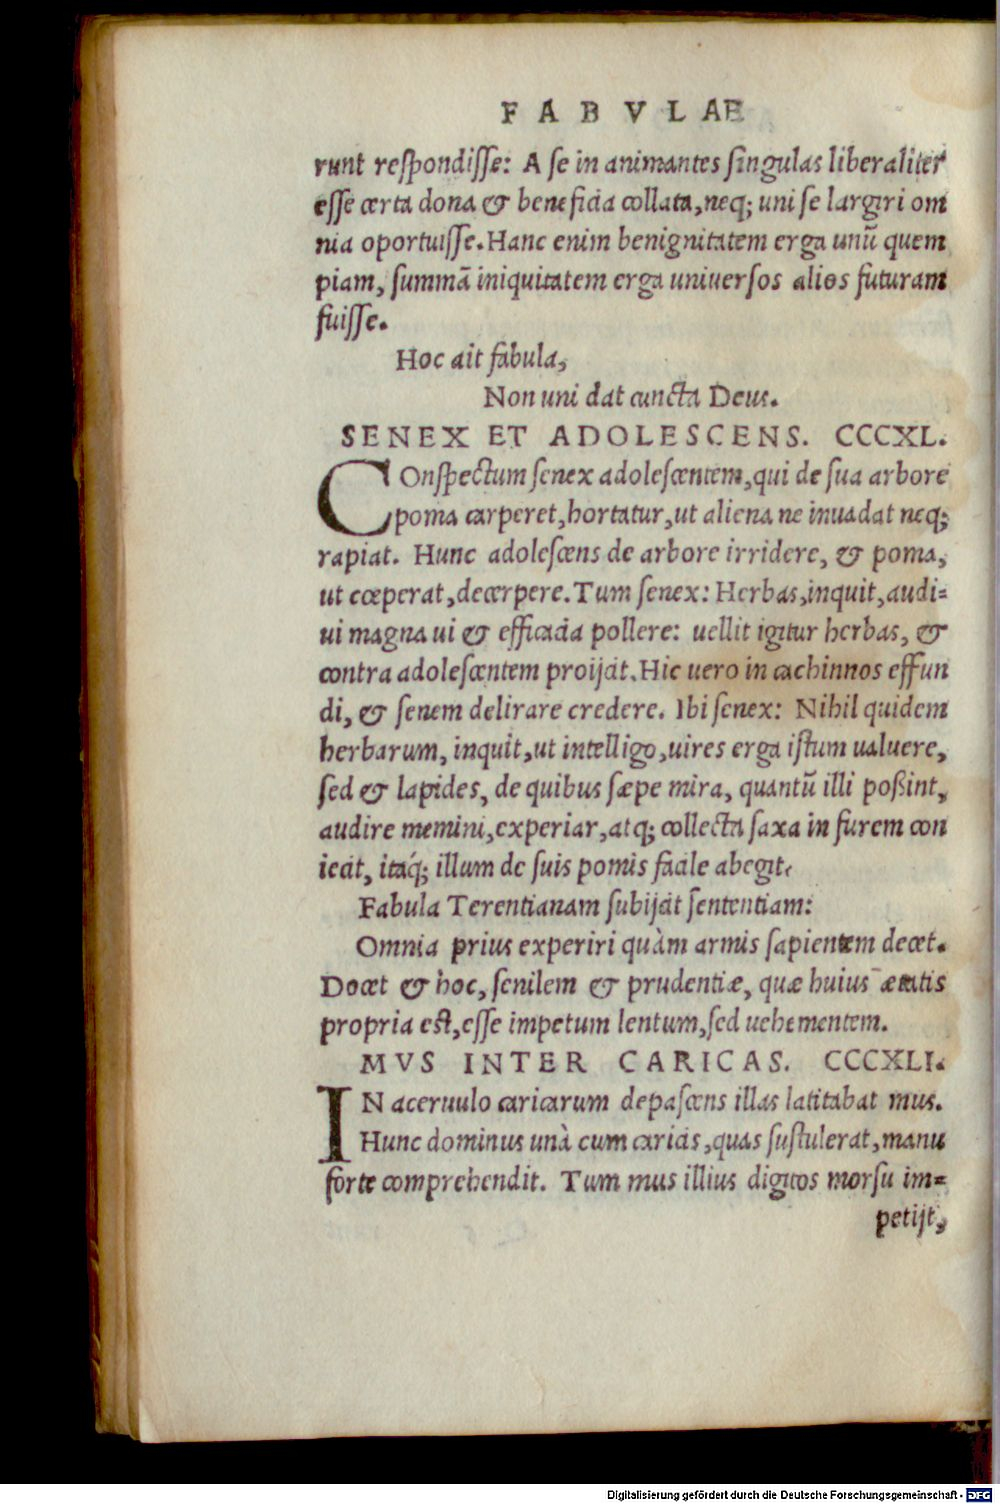 FABVLAE
runt respondisse: A se in animantes singulas liberaliter
esse certa dona & beneficia collata, neq; uni se largiri om
nia oportuisse. Hanc enim benignitatem erga unū quem
piam, summā iniquitatem erga uniuersos alios futuram
fuisse.
Hoc ait fabula,
Non uni dat cuncta Deus.
SENEX ET ADOLESCENS. CCCXL.
COnspectum senex adolescentem, qui de sua arbore
poma carperet, hortatur, ut aliena ne inuadat neq;
rapiat. Hunc adolescens de arbore irridere, & poma,
ut cœperat, decerpere. Tum senex: Herbas, inquit, audi-
ui magna ui & efficacia pollere: uellit igitur herbas, &
contra adolescentem proijcit. Hic uero in cachinnos effun
di, & senem delirare credere. Ibi senex: Nihil quidem
herbarum, inquit, ut intelligo, uires erga istum ualuere,
sed & lapides, de quibus sæpe mira, quantū illi poßint,
audire memini, experiar, atq; collecta saxa in furem con
iecit, itaq́; illum de suis pomis facile abegit.
Fabula Terentianam subijcit sententiam:
Omnia prius experiri quàm armis sapientem decet.
Docet & hoc, senilem & prudentiæ, quæ huius ætatis
propria est, esse impetum lentum, sed uehementem.
MVS INTER CARICAS. CCCXLI.
IN aceruulo caricarum depascens illas latitabat mus.
Hunc dominus unà cum caricis, quas sustulerat, manu
forte comprehendit. Tum mus illius digitos morsu im-
petijt,
Digitalisierung gefördert durch die Deutsche Forschungsgemeinschaft - DFG